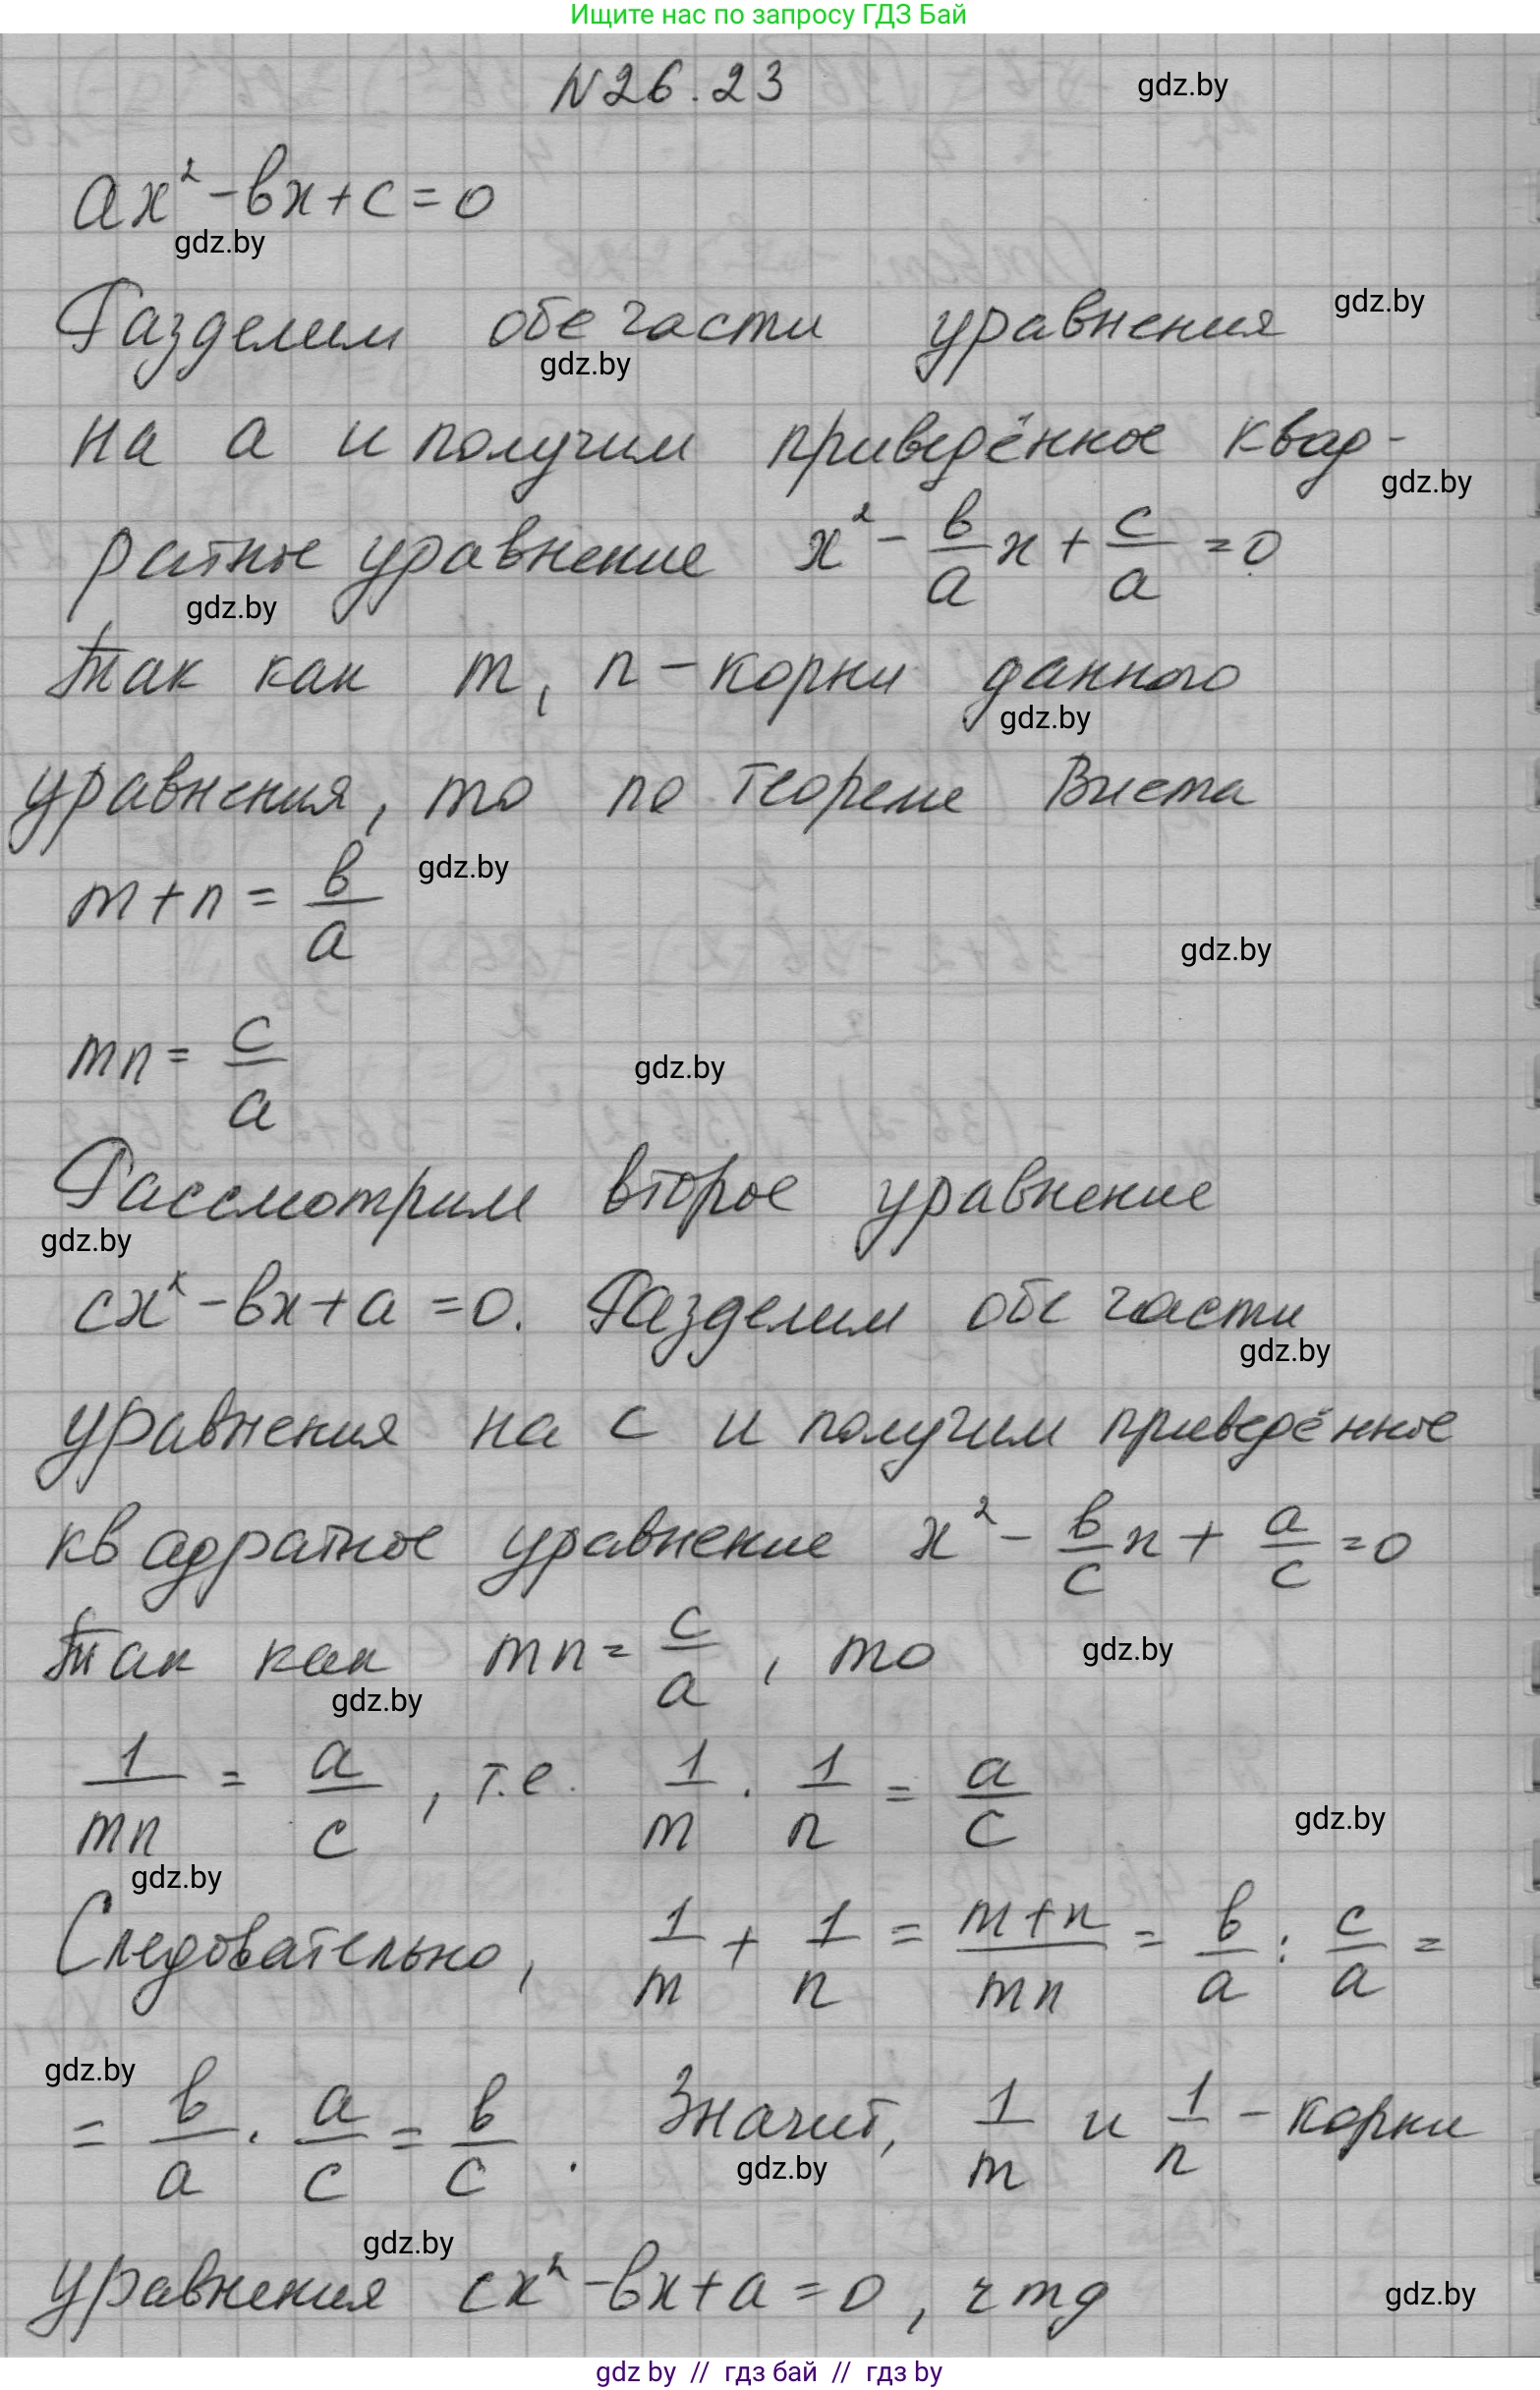 Ищите нас по запросу ГДЗ Бай
N26.23
gdz.by
ax² - bx + c = 0
gdz.by
Разделим обе части уравнения
gdz.by
gdz.by
на a и получим приведённое квад-
gdz.by
ратное уравнение x² - b/a x + c/a = 0
gdz.by
Так как m, n - корни данного
gdz.by
уравнения, то по теореме Виета
m + n = b/a
gdz.by
gdz.by
mn = c/a
gdz.by
Рассмотрим второе уравнение
gdz.by
cx² - bx + a = 0. Разделим обе части
gdz.by
уравнения на c и получим приведённое
квадратное уравнение x² - b/c x + a/c = 0
Так как mn = c/a, то
gdz.by
gdz.by
1/mn = a/c, т.е. 1/m · 1/n = a/c
gdz.by
gdz.by
Следовательно, 1/m + 1/n = m+n/mn = b/a : c/a =
gdz.by
= b/a · a/c = b/c. Значит, 1/m и 1/n - корни
gdz.by
gdz.by
уравнения cx² - bx + a = 0, чтд
gdz.by
gdz by // гдз бай // гдз by